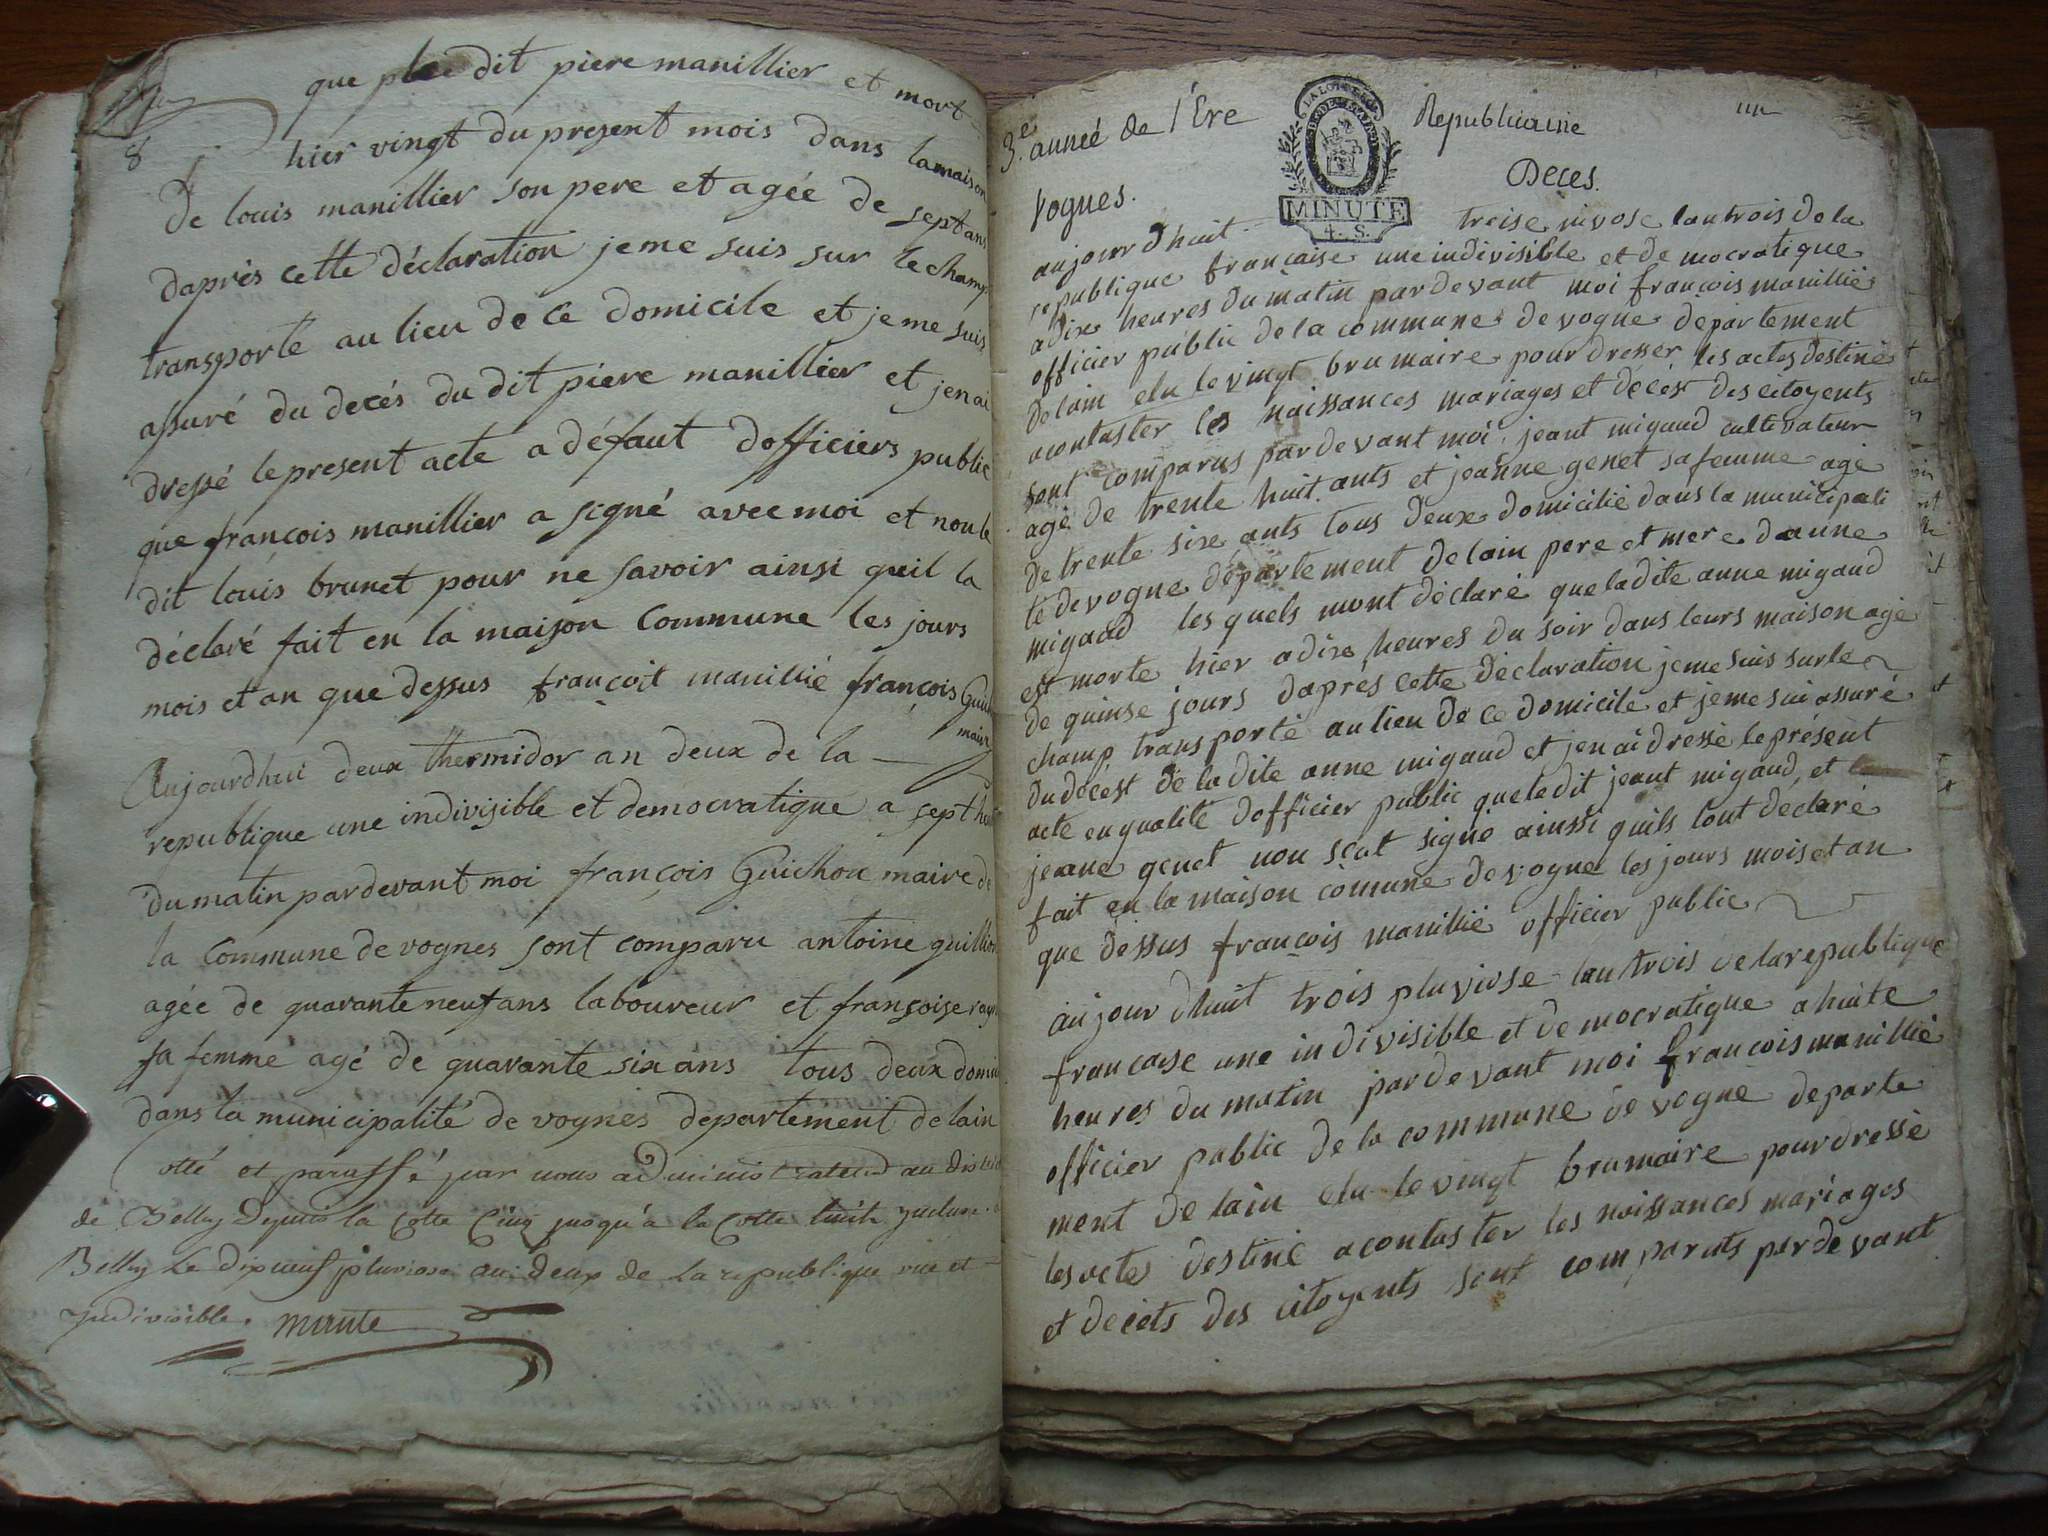 8
que ledit piere manillier et mort
hier vingt du present mois dans lamaison
De louis manillier son pere et agée de sept ans
daprès cette déclaration jeme suis sur le champ
transporte au lieu de ce domicile et jeme suis
assuré du decés du dit piere manillier et jenai
dressé lepresent acte a défaut dofficiers public
que françois manillier a signé avec moi et non le
dit louis brunet pour ne savoir ainsi queil la
déclaré fait en la maison commune les jours
mois et an que dessus françoit manillié françois
maire
Aujourdhui deux thermidor an deux de la
republique une indivisible et democratique a sept
du matin pardevant moi françois Guichon maire de
la commune de vognes sont comparu antoine
agée de quarante neuf ans laboureur et françoise
sa femme agé de quarante six ans tous deux
dans la municipalité de vognes departement de lain
Cotté et paraffé par nous administrateur du
de Belley depuis la Cotte Cinq jusqu'à la Cotte huit
Belley le dixneuf pluviose an deux de la republique une et
yndivisible.
3.e anneé de l'Ere Republicaine un
Vognes. Décès.
LA LOI ET LE ROI
MINUTE
4. S.
aujour dhuit treise nivose lan trois de la
republique française une indivisible et de mocratique
a dix heures du matin par devant moi françois manillié
officier public de la commune de vogne département
de lain elu le vingt brumaire pour dresser les actes destiné
a contaster les naissances mariages et décèst des citoyents
sont comparus par devant moi jeant migaud cultivateur
agé de trente huit ants et jeanne genet sa femme agé
de trente sixe ants tous deux domicilié dans la municipali
té de vogne département de lain pere et mere danne
migaud les quels mont déclaré que ladite anne migaud
est morte hier a dix heures du soir dans leurs maison agé
de quinse jours daprés cette déclaration jeme suis sur le
champ transporté au lieu de ce domicile et jeme sui assuré
du décèst de la dite anne migaud et jen ai dressé le présent
acte en qualité dofficier public que ledit jeant migaud, et
jeanne genet non scat signé ainssi quils lont declaré
fait en la maison comune de vogne les jours mois et an
que dessus françois manillié officier public
aujour dhuit trois pluviose lan trois de la republique
francaise une indivisible et de mocratique a huite
heures du matin par devant moi françois manillié
officier public de la commune de vogne departe
ment de lain elu le vingt brumaire pour dressé
les actes destiné a contaster les naissances mariages
et decets des citoyents sont comparuts par devant